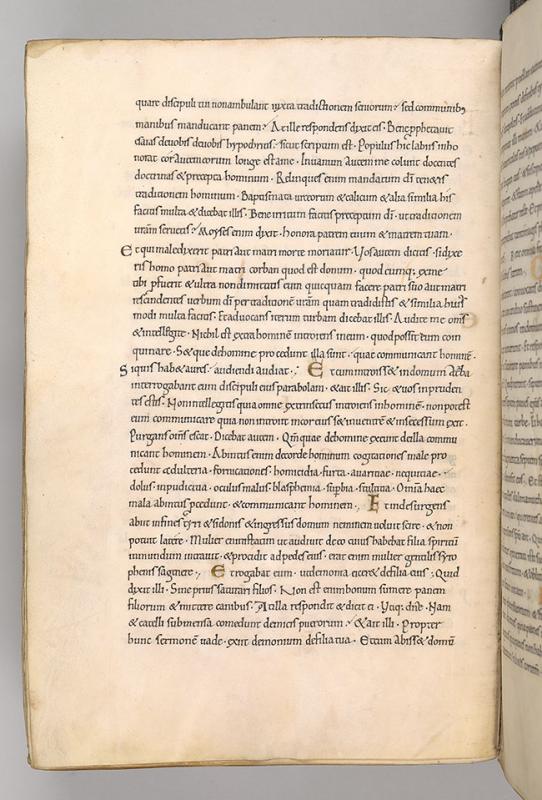 quare discipuli tui non ambulant iuxta traditionem seniorum? sed communib;
manibus manducant panem? At ille respondens dixit eis. Bene pphetauit
esaias de uobis hypocritis. sicut scriptum est. Populus hic labiis me ho
norat cor autem eorum longe est a me. In uanum autem me colunt docentes
doctrinas & precepta hominum. Relinquens enim mandatum di tenetis
traditionem hominum. Baptismata urceorum & calicum & alia similia his
facitis multa & dicebat illis. Bene irritum facitis preceptum di. ut traditionem
uram seruetis? Moyses enim dixit. honora patrem tuum & matrem tuam.
Et qui maledixerit patri aut matri morte moriatur. Vos autem dicitis. si dixe
rit homo patri aut matri corban quod est donum. quod cumq; ex me
tibi pfuerit & ultra non dimittitis eum quicquam facere patri suo aut matri
rescindentes uerbum di per traditionem uram quam tradidistis & similia hui
modi multa facitis. Et aduocans iterum turbam dicebat illis. Audite me oms
& intellegite. Nichil est extra hominem introiens in eum. quod possit eum coin
quinare. S& que de homine procedunt illa sunt. quae communicant hominē.
Si quis hab& aures. audiendi audiat. Et cum introiss& in domum a turba
interrogabant eum discipuli eius parabolam. & ait illis. Sic & uos impruden
tes estis. Non intellegitis quia omne extrinsecus introiens in hominē. non potest
eum communicare quia non introit in cor eius s& in uentrē & in secessum exit.
Purgans oms escas. Dicebat autem. Qm quae de homine exeunt illa commu
nicant hominem. Ab intus enim de corde hominum cogitationes male pro
cedunt adulteria. fornicationes. homicidia. furta. auaritiae. nequitiae.
dolus. inpudicitia. oculus malus. blasphemia. supbia. stultitia. Omnia haec
mala ab intus pcedunt. & communicant hominem. Et inde surgens
abiit in fines tyri & sidonis & ingressus domum neminem uoluit scire. & non
potuit latere. Mulier enim statim ut audiuit de eo cuius habebat filia spiritū
inmundum intrauit. & procidit ad pedes eius. erat enim mulier gentilis syro
phenissa genere. Et rogabat eum. ut demonia eicer& de filia eius. Qui
dixit illi. Sine prius saturari filios. Non est enim bonum sumere panem
filiorum & mittere canibus. At illa respondit & dicit ei. Vtiq; dne. Nam
& catelli sub mensa comedunt de micis puerorum. & ait illi. Propter
hunc sermonē uade. exiit demonium de filia tua. Et cum abiss& domū